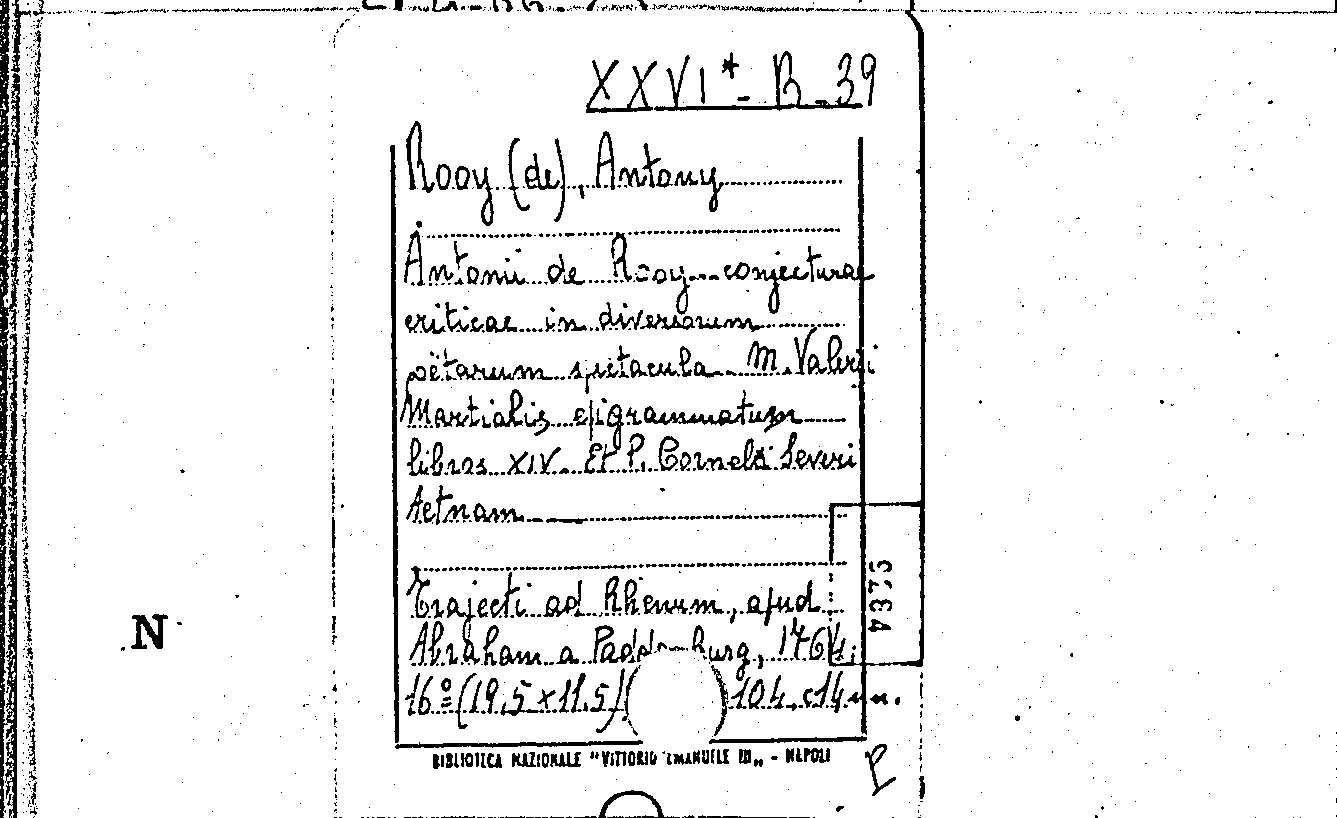 XXVI*-B-39
Rooy (de), Antony
Antonii de Rooy conjecturae
criticae in diversorum
poëtarum spectacula M. Valerii
Martialis epigrammatum
libros XIV. Et P. Cornelii Severi
Aetnam
4375
Trajecti ad Rhenum, apud
Abraham a Padd burg, 1764.
N
16º (19,5 x 11,5) 104. c14
BIBLIOTECA NAZIONALE "VITTORIO EMANUELE III„ - NAPOLI